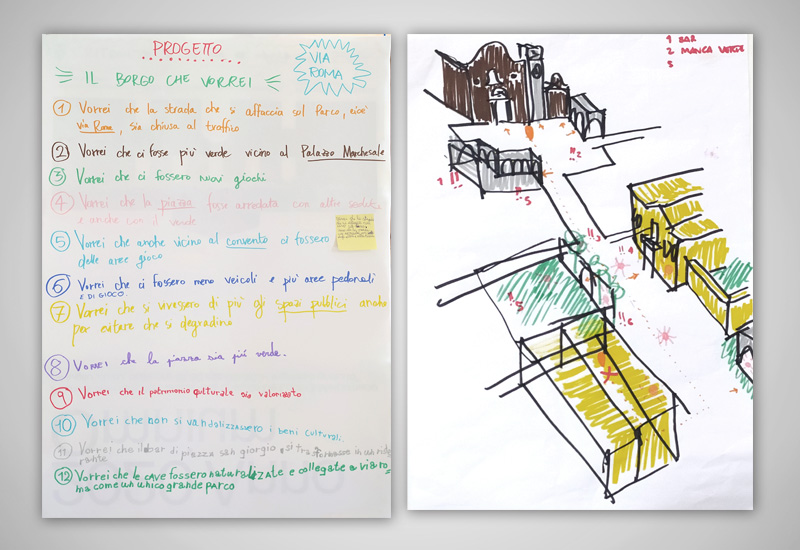 PROGETTO
IL BORGO CHE VORREI
VIA
ROMA
1 Vorrei che la strada che si affaccia sul Parco, cioè
via Roma, sia chiusa al traffico
2 Vorrei che ci fosse più verde vicino al Palazzo Marchesale
3 Vorrei che ci fossero nuovi giochi
4 Vorrei che la piazza fosse arredata con altre sedute
e anche con il verde
5 Vorrei che anche vicino al convento ci fossero
delle aree gioco
6 Vorrei che ci fossero meno veicoli e più aree pedonali
E DI GIOCO.
7 Vorrei che si vivessero di più gli spazi pubblici anche
per evitare che si degradino
8 VORREI che la piazza sia più verde.
9 Vorrei che il patrimonio culturale sia valorizzato
10 Vorrei che non si vandalizzassero i beni culturali.
11 Vorrei che il bar di piazza san giorgio si trasformasse in un risto
rante
12 Vorrei che le cave fossero naturalizzate e collegate a via ro
ma come un unico grande parco
1 BAR
2 MANCA VERDE
3
1 !!
!!2
!!5
!!3
!!4
!!5
!!6